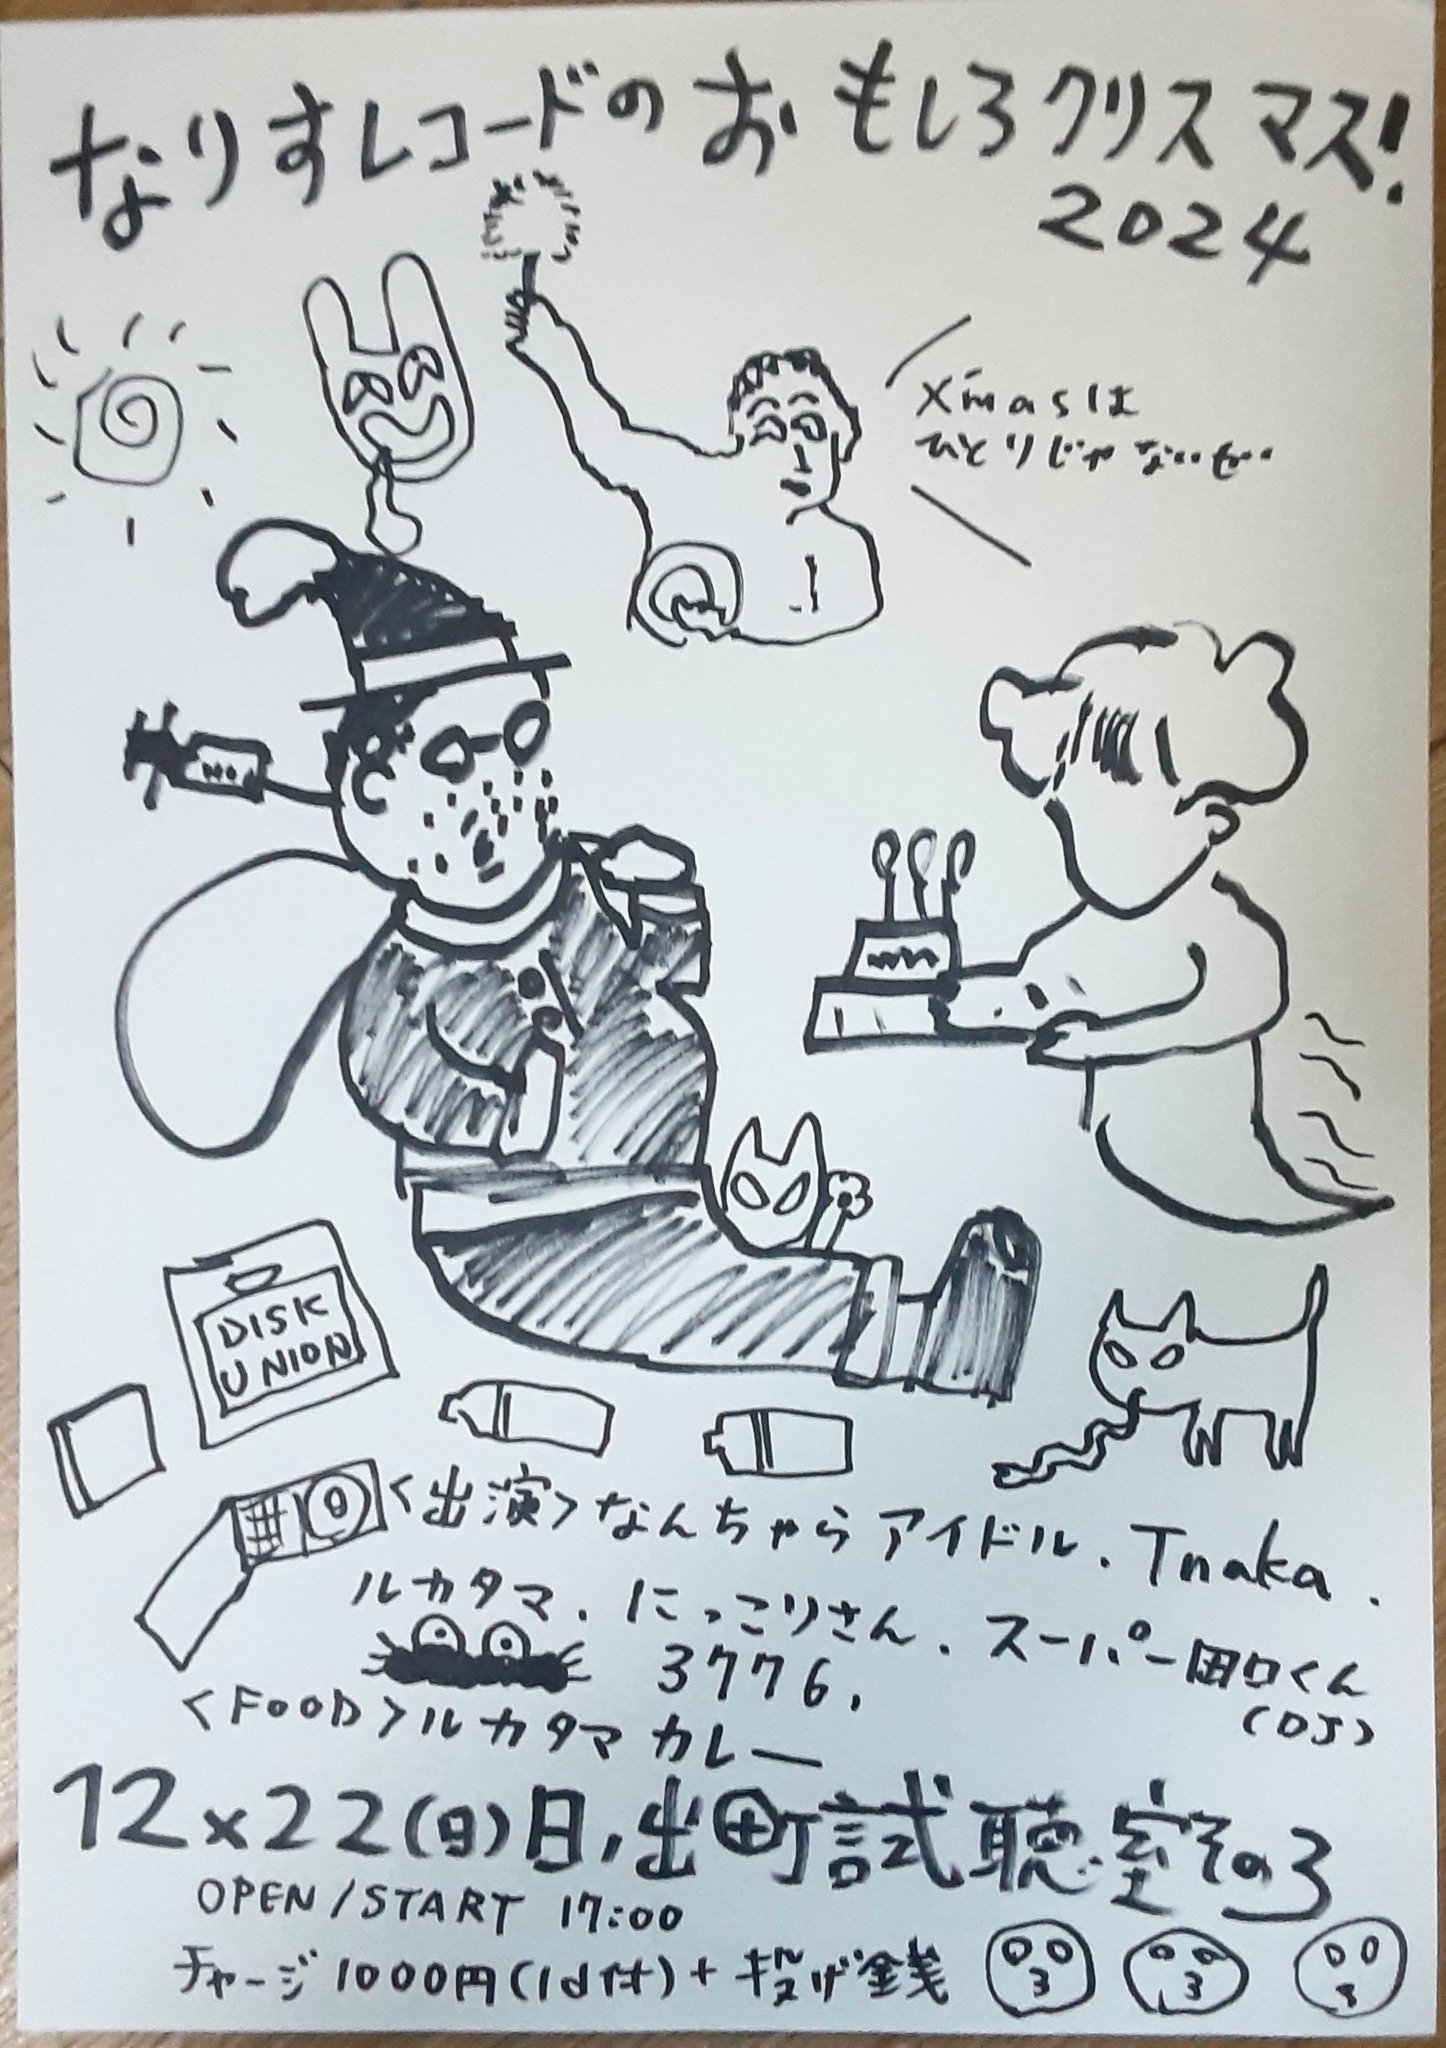 なりすレコードのおもしろクリスマス!
2024
X'masは
ひとりじゃないぜ…
DISK
UNION
<出演>なんちゃらアイドル.Tnaka.
ルカタマ.にっこりさん.スーパー田口くん
(DJ)
3776.
<FOOD>ルカタマカレー
12×22(日)日,出町試聴室その3
OPEN/START 17:00
チャージ1000円(1d付)+投げ銭